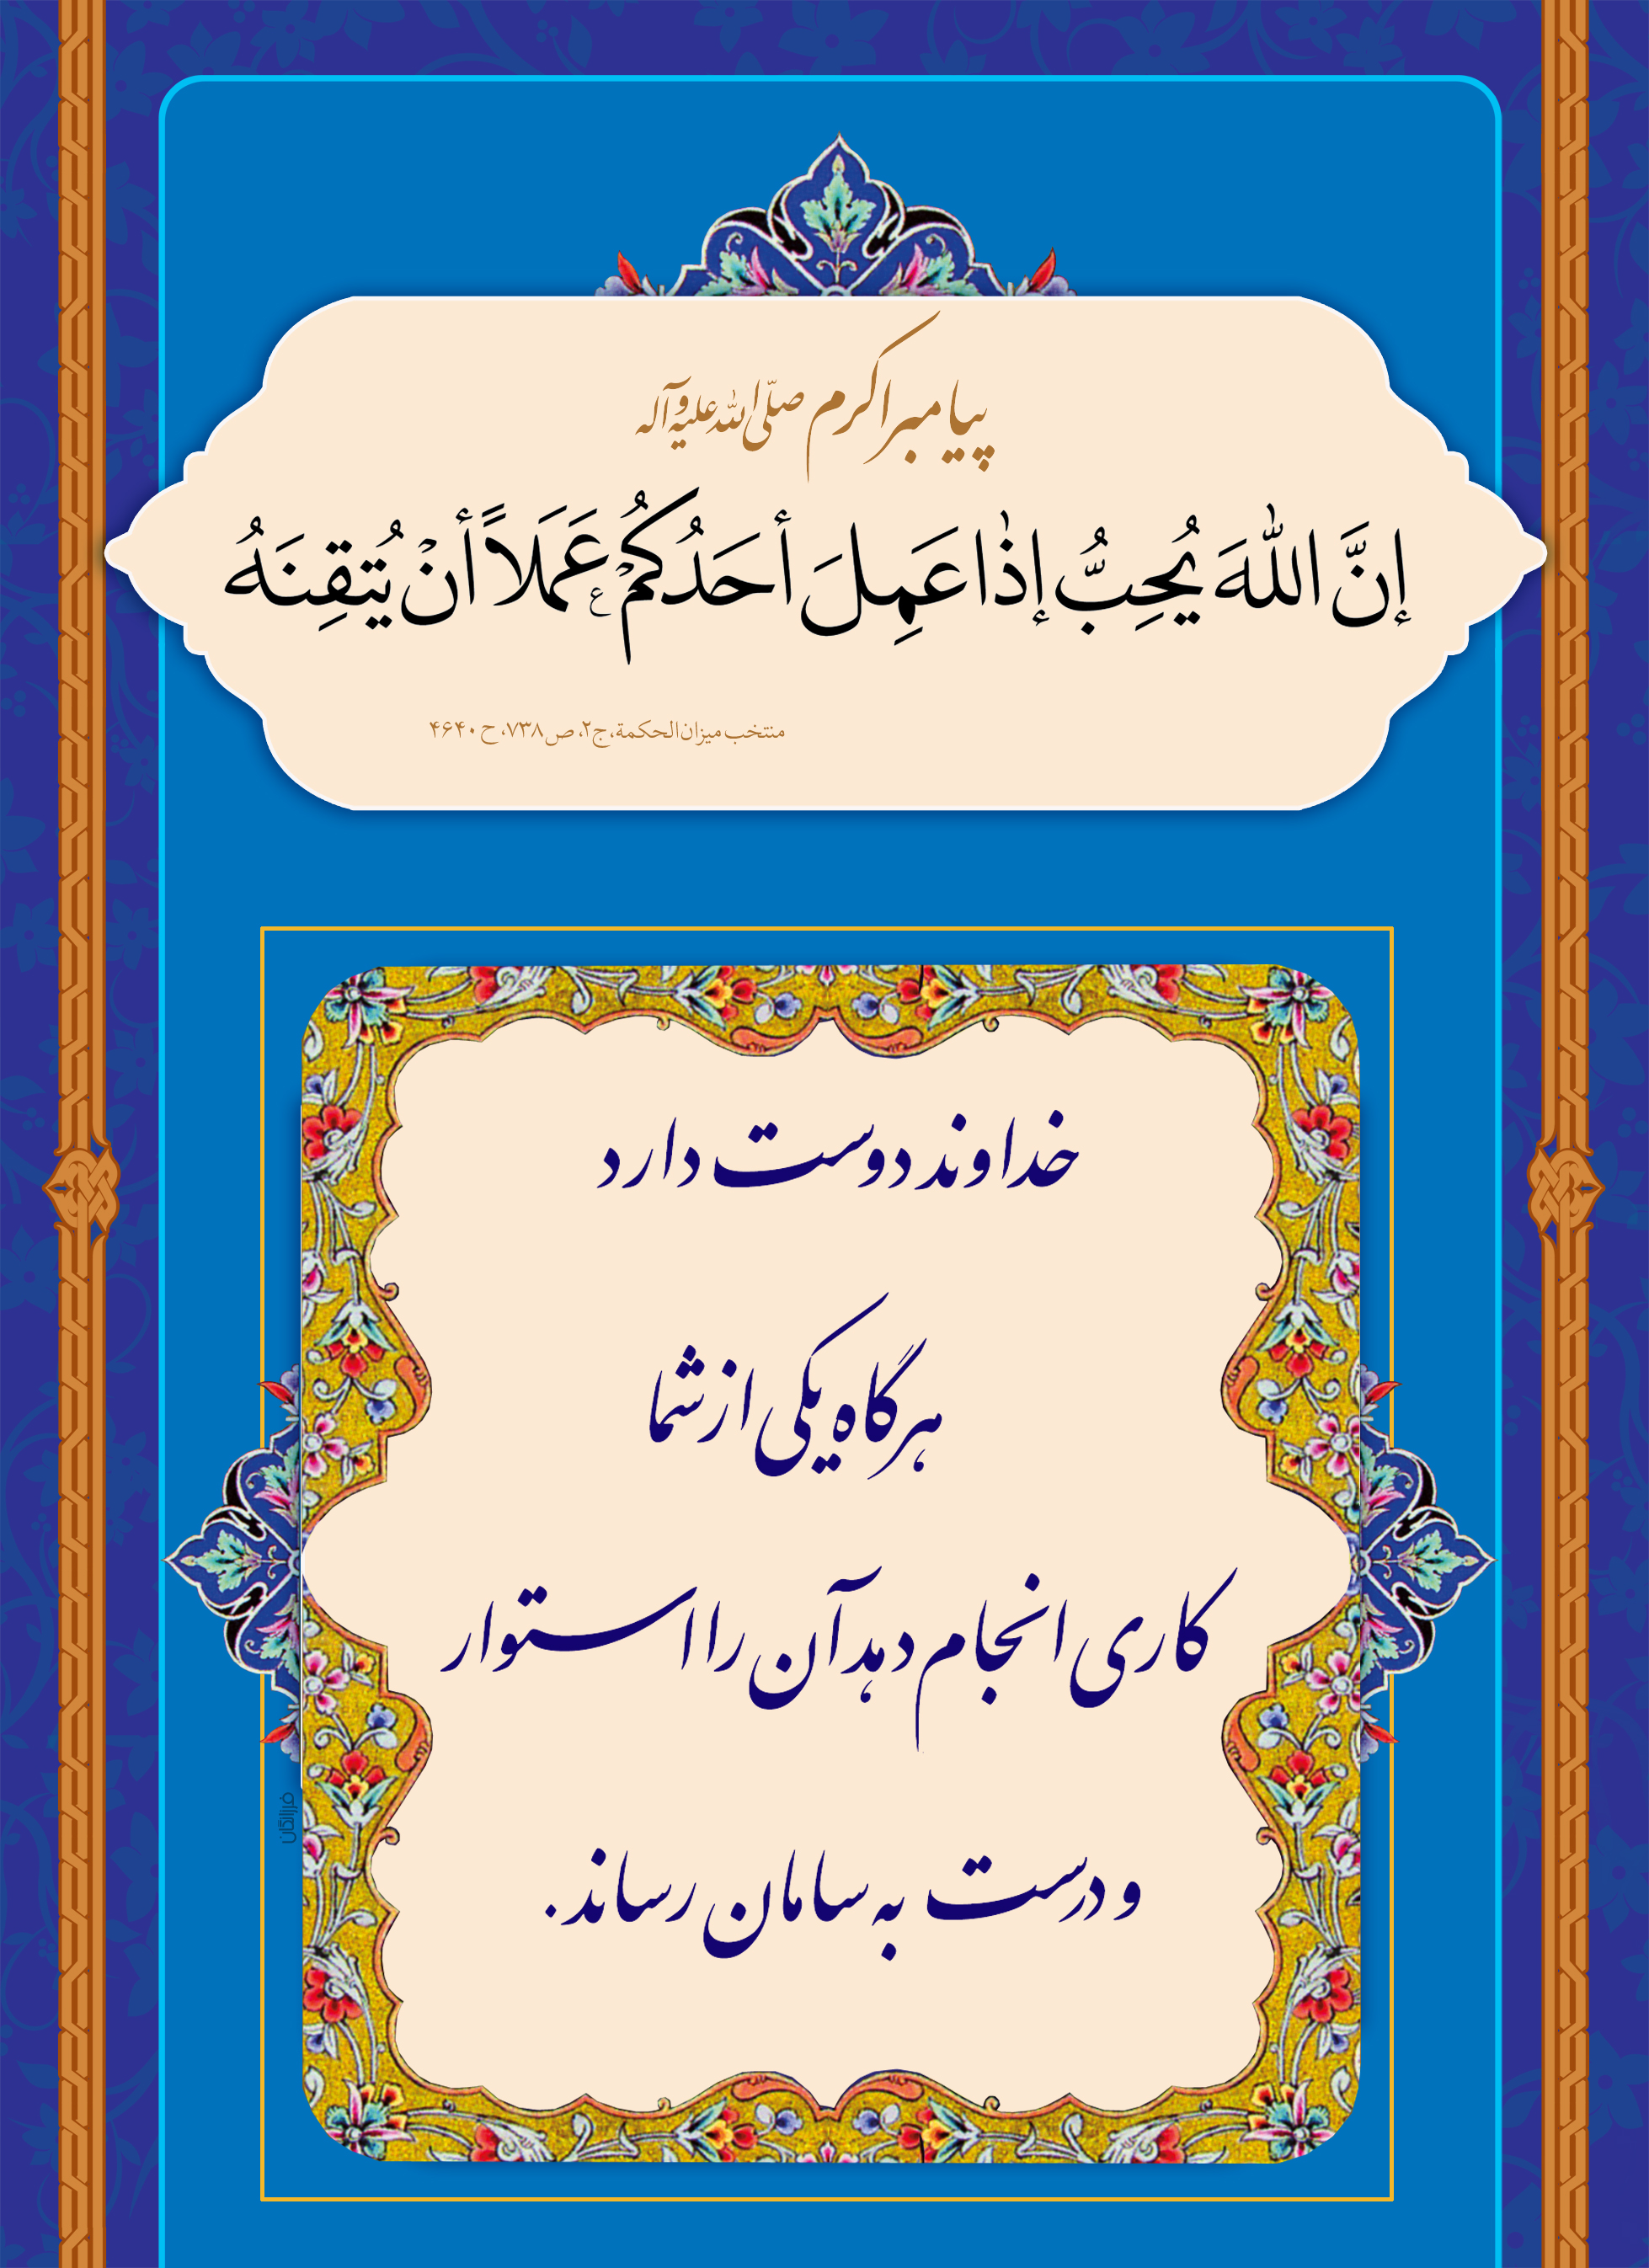 پیامبر اکرم صلّی الله علیه و آله
إنَّ اللّٰهَ يُحِبُّ إذٰا عَمِلَ أحَدُكُمْ عَمَلاً أنْ يُتقِنَهُ
منتخب میزان الحکمة، ج۲، ص۷۳۸، ح۴۶۴۰
خداوند دوست دارد
هرگاه یکی از شما
کاری انجام دهد آن را استوار
و درست به سامان رساند.
فرزانگان